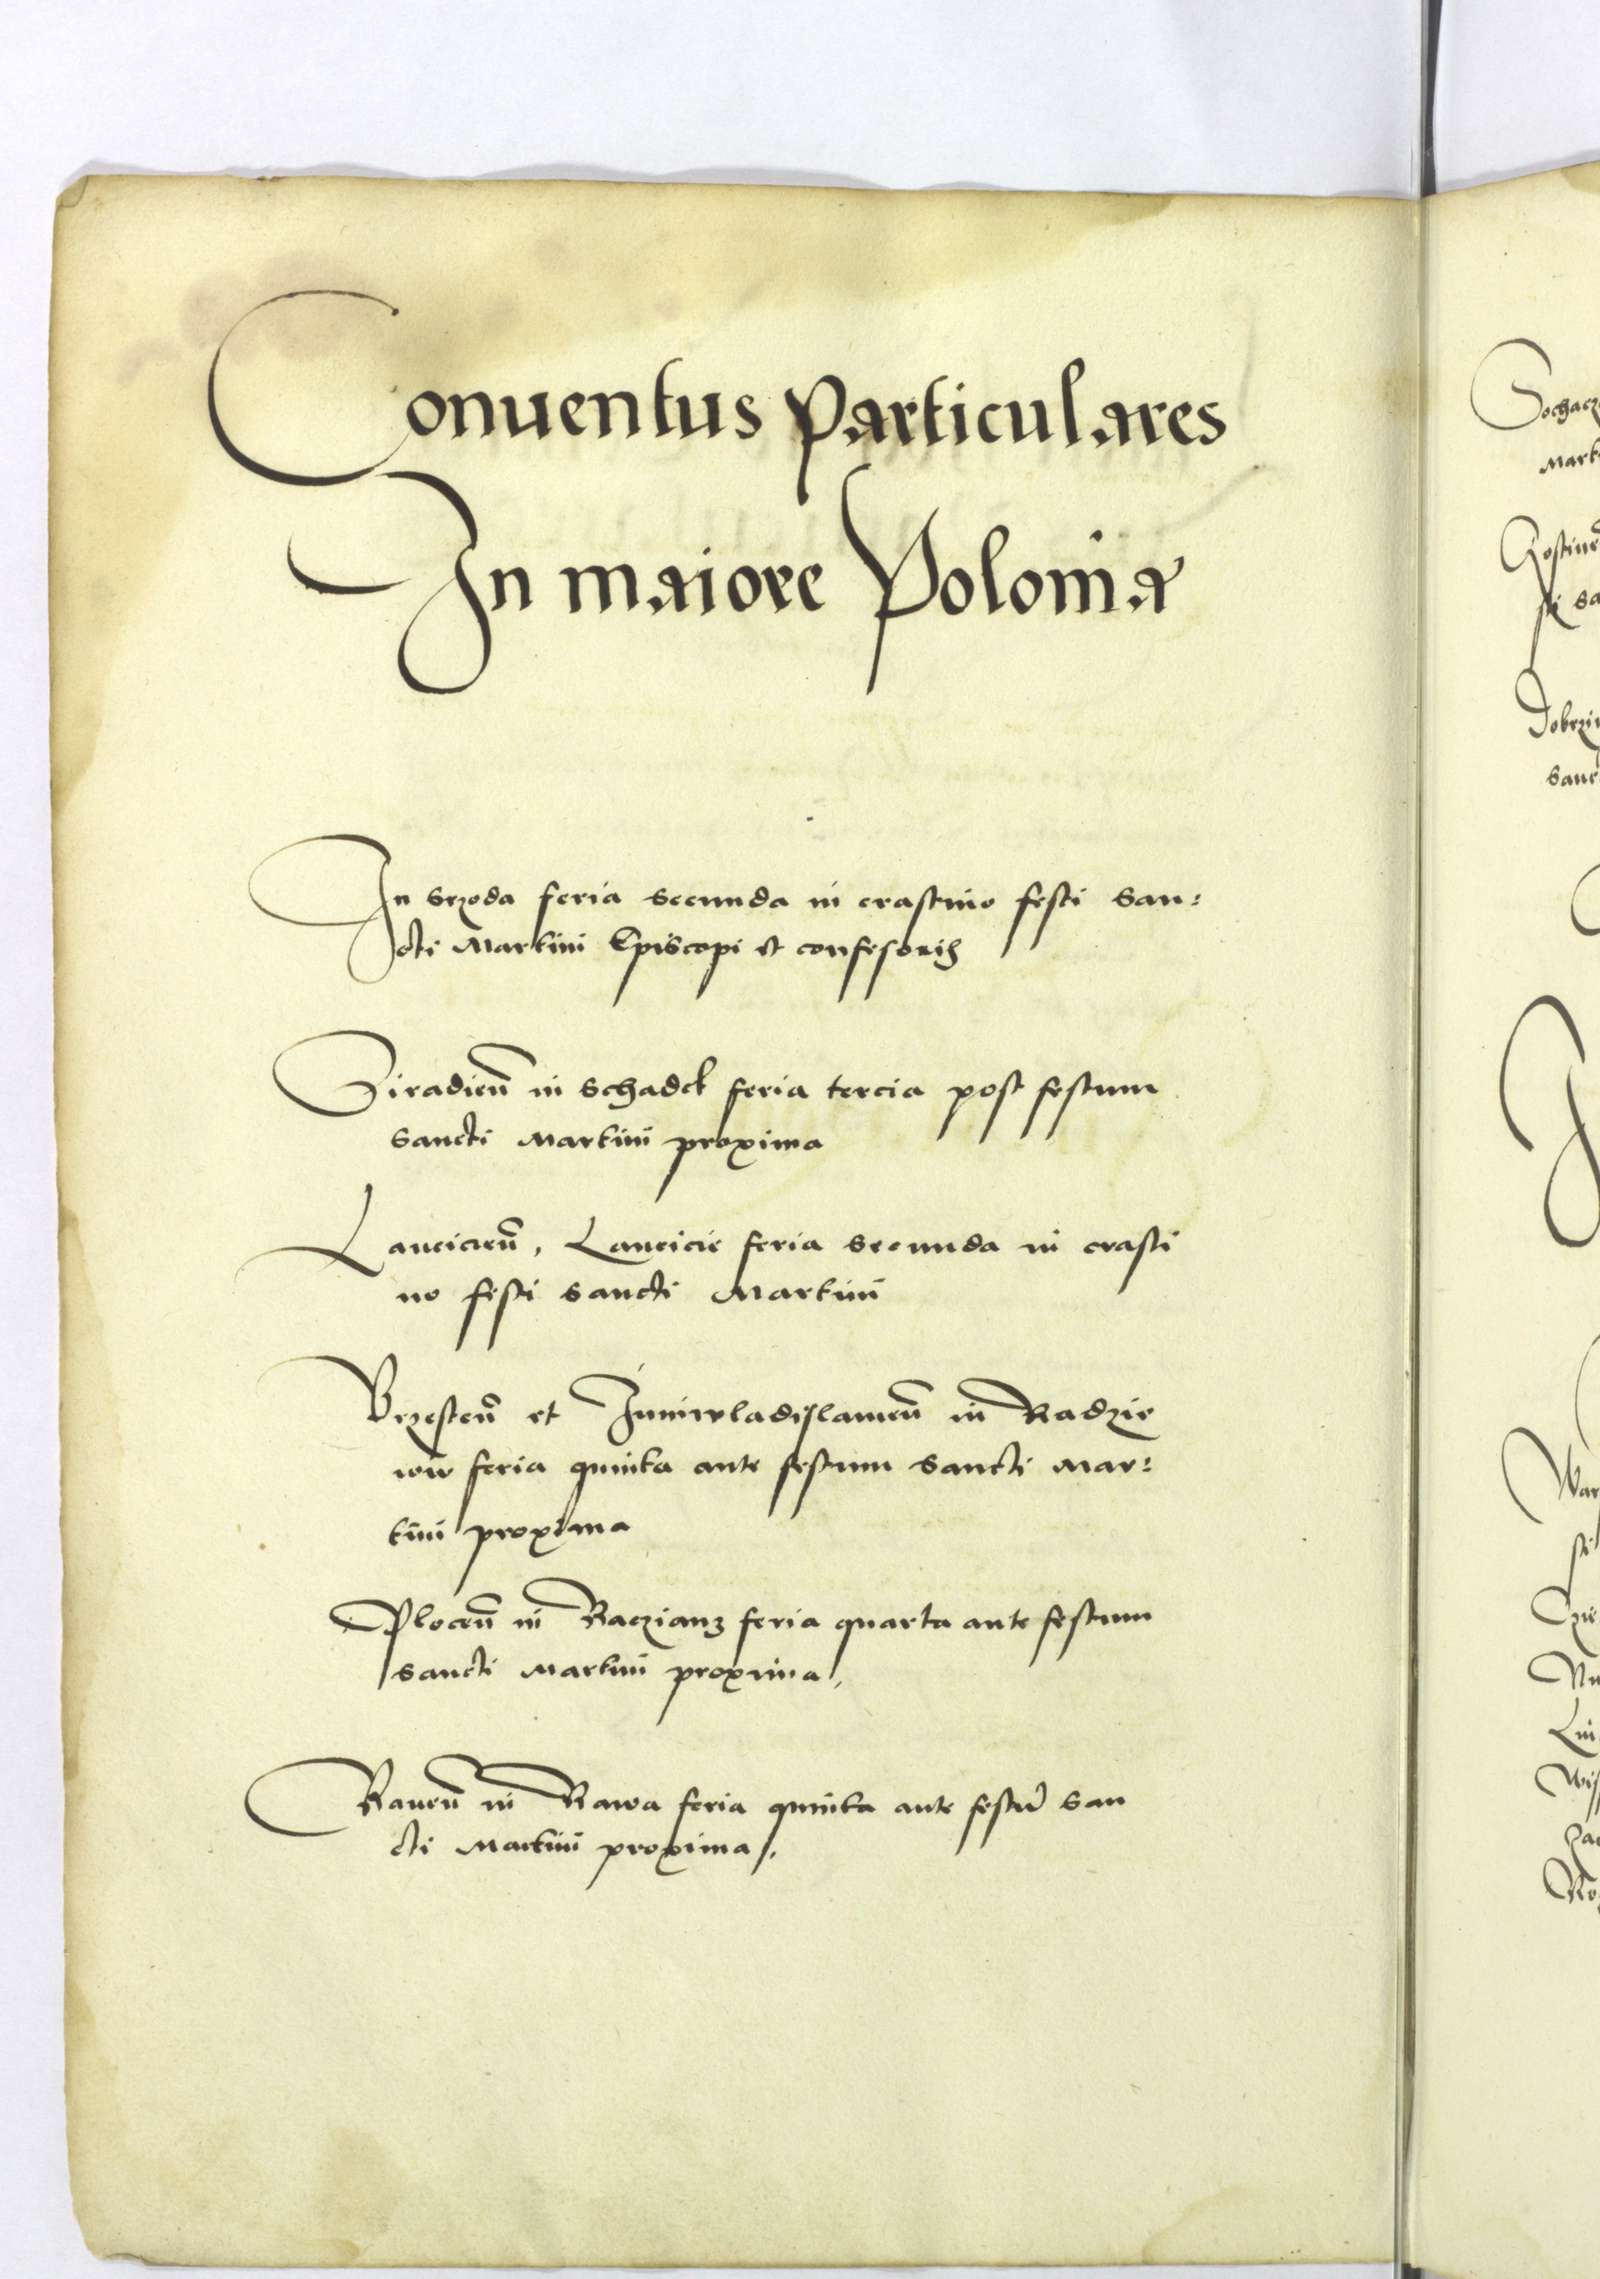 Conuentus Particulares
In maiore Polonia
In srzoda feria secunda in crastino festi san:
cti Martini Episcopi et confesoris
Siradien̄ in Schadek feria tercia post festum
sancti Martini proxima
Lancicien̄, Lancicie feria secunda in crasti
no festi sancti Martini
Brzesten̄ et Iuniwladislauien̄ in Radzie
iow feria quinta ante festum sancti Mar:
tini proxima
Plocen̄ in Raczianz feria quarta ante festum
sancti Martini proxima,
Rauen̄ in Rawa feria quinta ante festū san
cti Martini proxima,
Gostin
Dobrzi
sanc